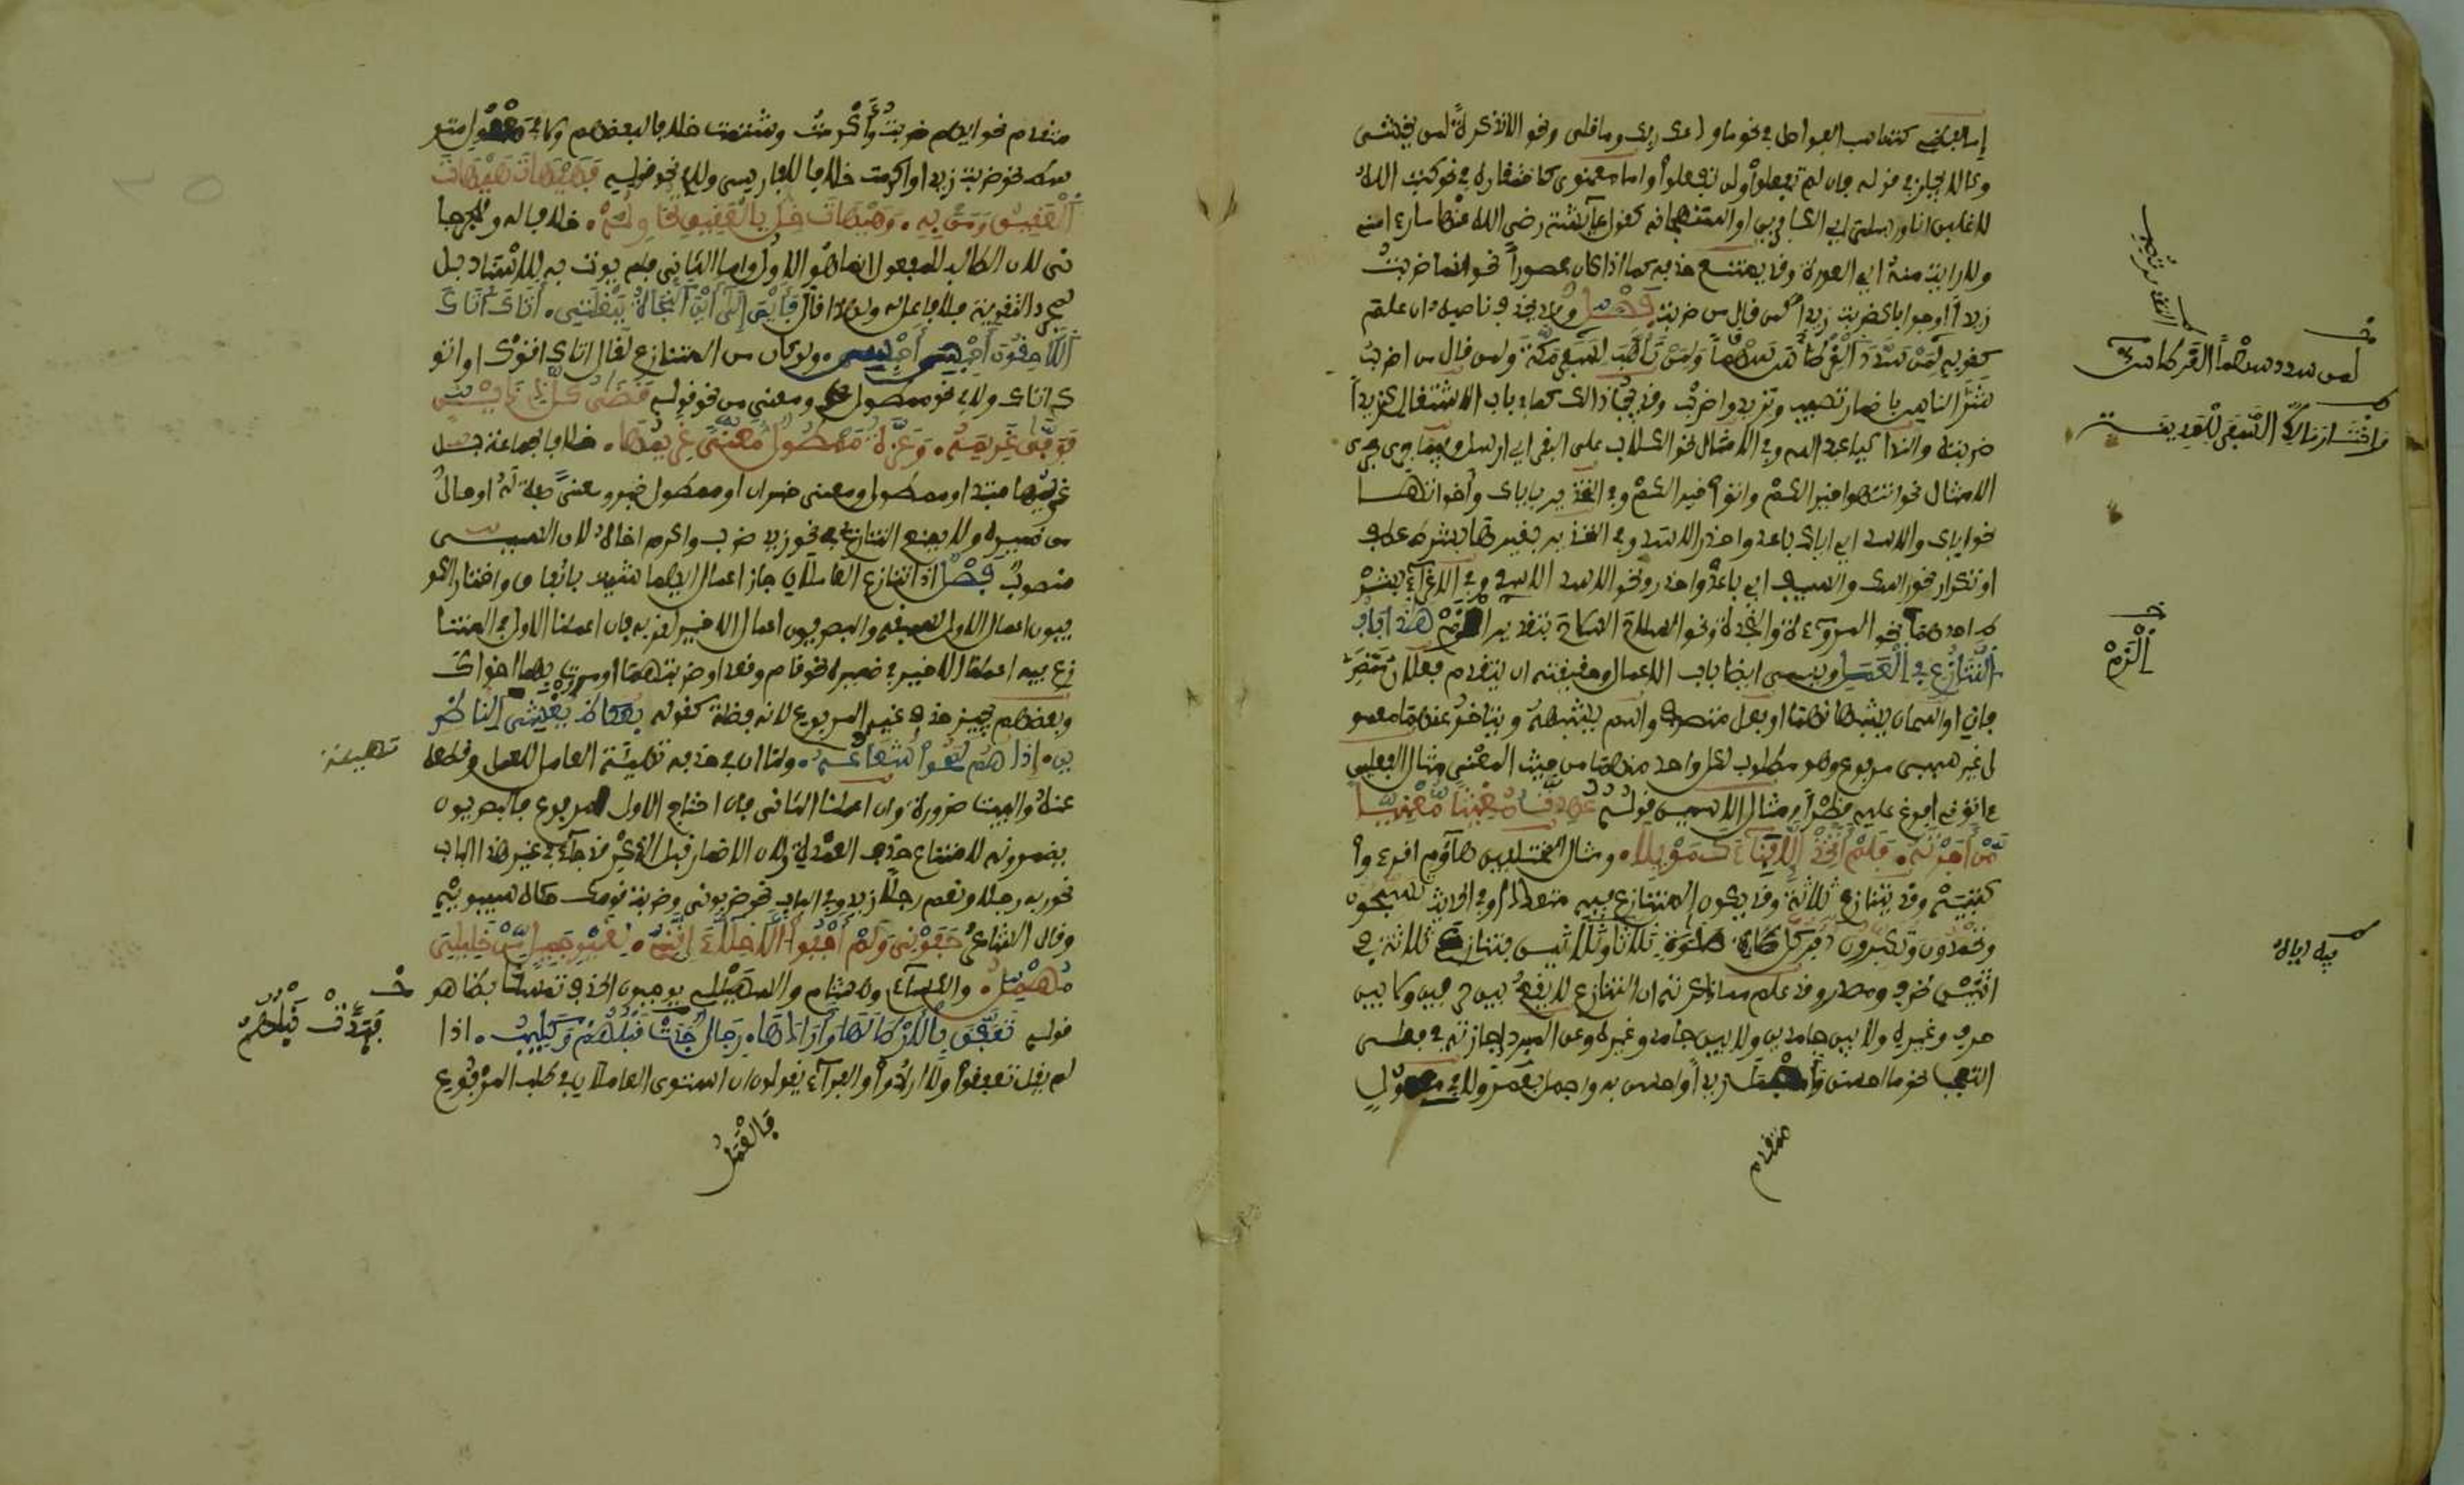 إما لفظي كتناسب الفواصل في نحو ما ودعك ربك وما قلى ونحو الا تذكرة لمن يخشى
وكالايجاز في قوله فان لم تفعلوا ولن تفعلوا واما معنوي كاحتقاره في نحو كتب الله
لاغلبن انا ورسلي اي الكافرين او استهجانه كقول عآئشة رضي الله عنها ما رءا مني
ولا رايت منه اي العورة وقد يمتنع حذفه كما اذا كان محصورا نحو انما ضربت
زيدا او جوابا كضربت زيدا لمن قال من ضربت فصل وقد يحذف ناصبه ان علم
كقوله لمن سدد القرطاس سهما ولمن تأهب لسفر مكة ولمن قال من اضرب
شر الناس باضمار تصيب وتريد واضرب وقد يجب ذالك كما في باب الاشتغال كزيدا
ضربته والندا كيا عبد الله وفي الامثال نحو الكلاب على البقر اي ارسل وفيما جرى مجرى
الامثال نحو انتهوا خيرا لكم واتوا خيرا لكم وفي التحذير باياك وأخواتها
نحو اياك والاسد اي اياك باعد واحذر الاسد وفي التحذير بغيرها بشرط عطف
او تكرار نحو راسك والسيف اي باعد واحذر ونحو الاسد الاسد وفي الاغرآء بشر
ط احدهما نحو المروءة والنجدة ونحو السلاح السلاح بتقدير الزم هذا باب
التنازع في العمل ويسمى ايضا باب الاعمال وحقيقته ان يتقدم فعلان متصر
فان او اسمان يشبهانهما او فعل متصرف واسم يشبهه ويتاخر عنهما معمو
ل غير سببي مرفوع وهو مطلوب لكل واحد منهما من حيث المعنى مثال الفعلين
ءاتوني افرغ عليه قطرا ومثال الاسمين قوله عهدت مغيثا مغنيا
من أجرته فلم أتخذ إلا فنآءك موئلا ومثال المختلفين هآؤم اقرءوا
كتبيه وقد يتنازع ثلاثة وقد يكون المتنازع فيه متعددا وفي الحديث تسبحون
وتحمدون وتكبرون دبر كل صلوة ثلاثا وثلاثين فتنازع ثلاثة في
اثنين ظرف ومصدر وقد علم مما ذكرته ان التنازع لا يقع بين حرفين ولا بين
حرف وغيره ولا بين جامدين ولا بين جامد وغيره وعن المبرد اجازته في فعلى
التعجب نحو ما احسن وأجمل زيدا واحسن به واجمل بعمرو ولا في معمول
متقدم
لمن سدد سهما القرطاس
الزم
متقدم نحو ايهم ضربت وأكرمت وشتمت خلافا لبعضهم ولا في معمول متو
سط نحو ضربت زيدا واكرمت خلافا للفارسي ولا في نحو قوله فهيهات هيهات
العقيق ومن به وهيهات خل بالعقيق نواصله خلافا له وللجرجا
ني لان الطالب للمعمول انما هو الاول واما الثاني فلم يوت به للاسناد بل
لمجرد التقوية فلا فاعل له ولهذا قال فأين إلى أين النجاة ببغلتي أتاك أتاك
اللاحقون احبس احبس ولو كان من المتنازع لقال اتاك اتوك او اتو
ك اتاك ولا في نحو ممطول ومعنى من قوله قضى كل ذي دين
فوفى غريمه وعزة ممطول معنى غريمها خلافا لجماعة بل
غريمها مبتدا وممطول ومعنى خبران او ممطول خبر ومعنى صفة له او حال
من ضميره ولا يمتنع التنازع في نحو زيد ضرب واكرم اخاه لان السببي
منصوب فصل اذا تنازع العاملان جاز اعمال ايهما شئت باتفاق واختار الكو
فيون اعمال الاول لسبقه والبصريون اعمال الاخير لقربه فان اعملنا الاول في المتنا
زع فيه اعملنا الاخير في ضميره نحو قام وقعدا وضربتهما ومررت بهما اخواك
وبعضهم يجيز حذف غير المرفوع لانه فضلة كقوله بعكاظ يعشى الناظر
ين إذا هم لمحوا شعاعه ولنا ان في حذفه تهيئة العامل للعمل وقطعه
عنه والبيت ضرورة وان اعملنا الثاني فان احتاج الاول لمرفوع فالبصريون
يضمرونه لامتناع حذف العمدة ولان الاضمار قبل الذكر قد جآء في غير هذا الباب
نحو ربه رجلا ونعم رجلا زيد وفي الباب نحو ضربوني وضربت قومك حكاه سيبويه
وقال الشاعر جفوني ولم أجف الأخلاء إنني لغير جميل من خليلي
مهمل والكسآءي وهشام والسهيلي يوجبون الحذف تمسكا بظاهر
قوله تعفق بالأرطى لها وأرادها رجال فبذت نبلهم وكليب اذا
لم يقل تعفقوا ولا ارادوا والفرآء يقول ان استوى العاملان في طلب المرفوع
فالعمل
تهيئة
فبذت نبلهم